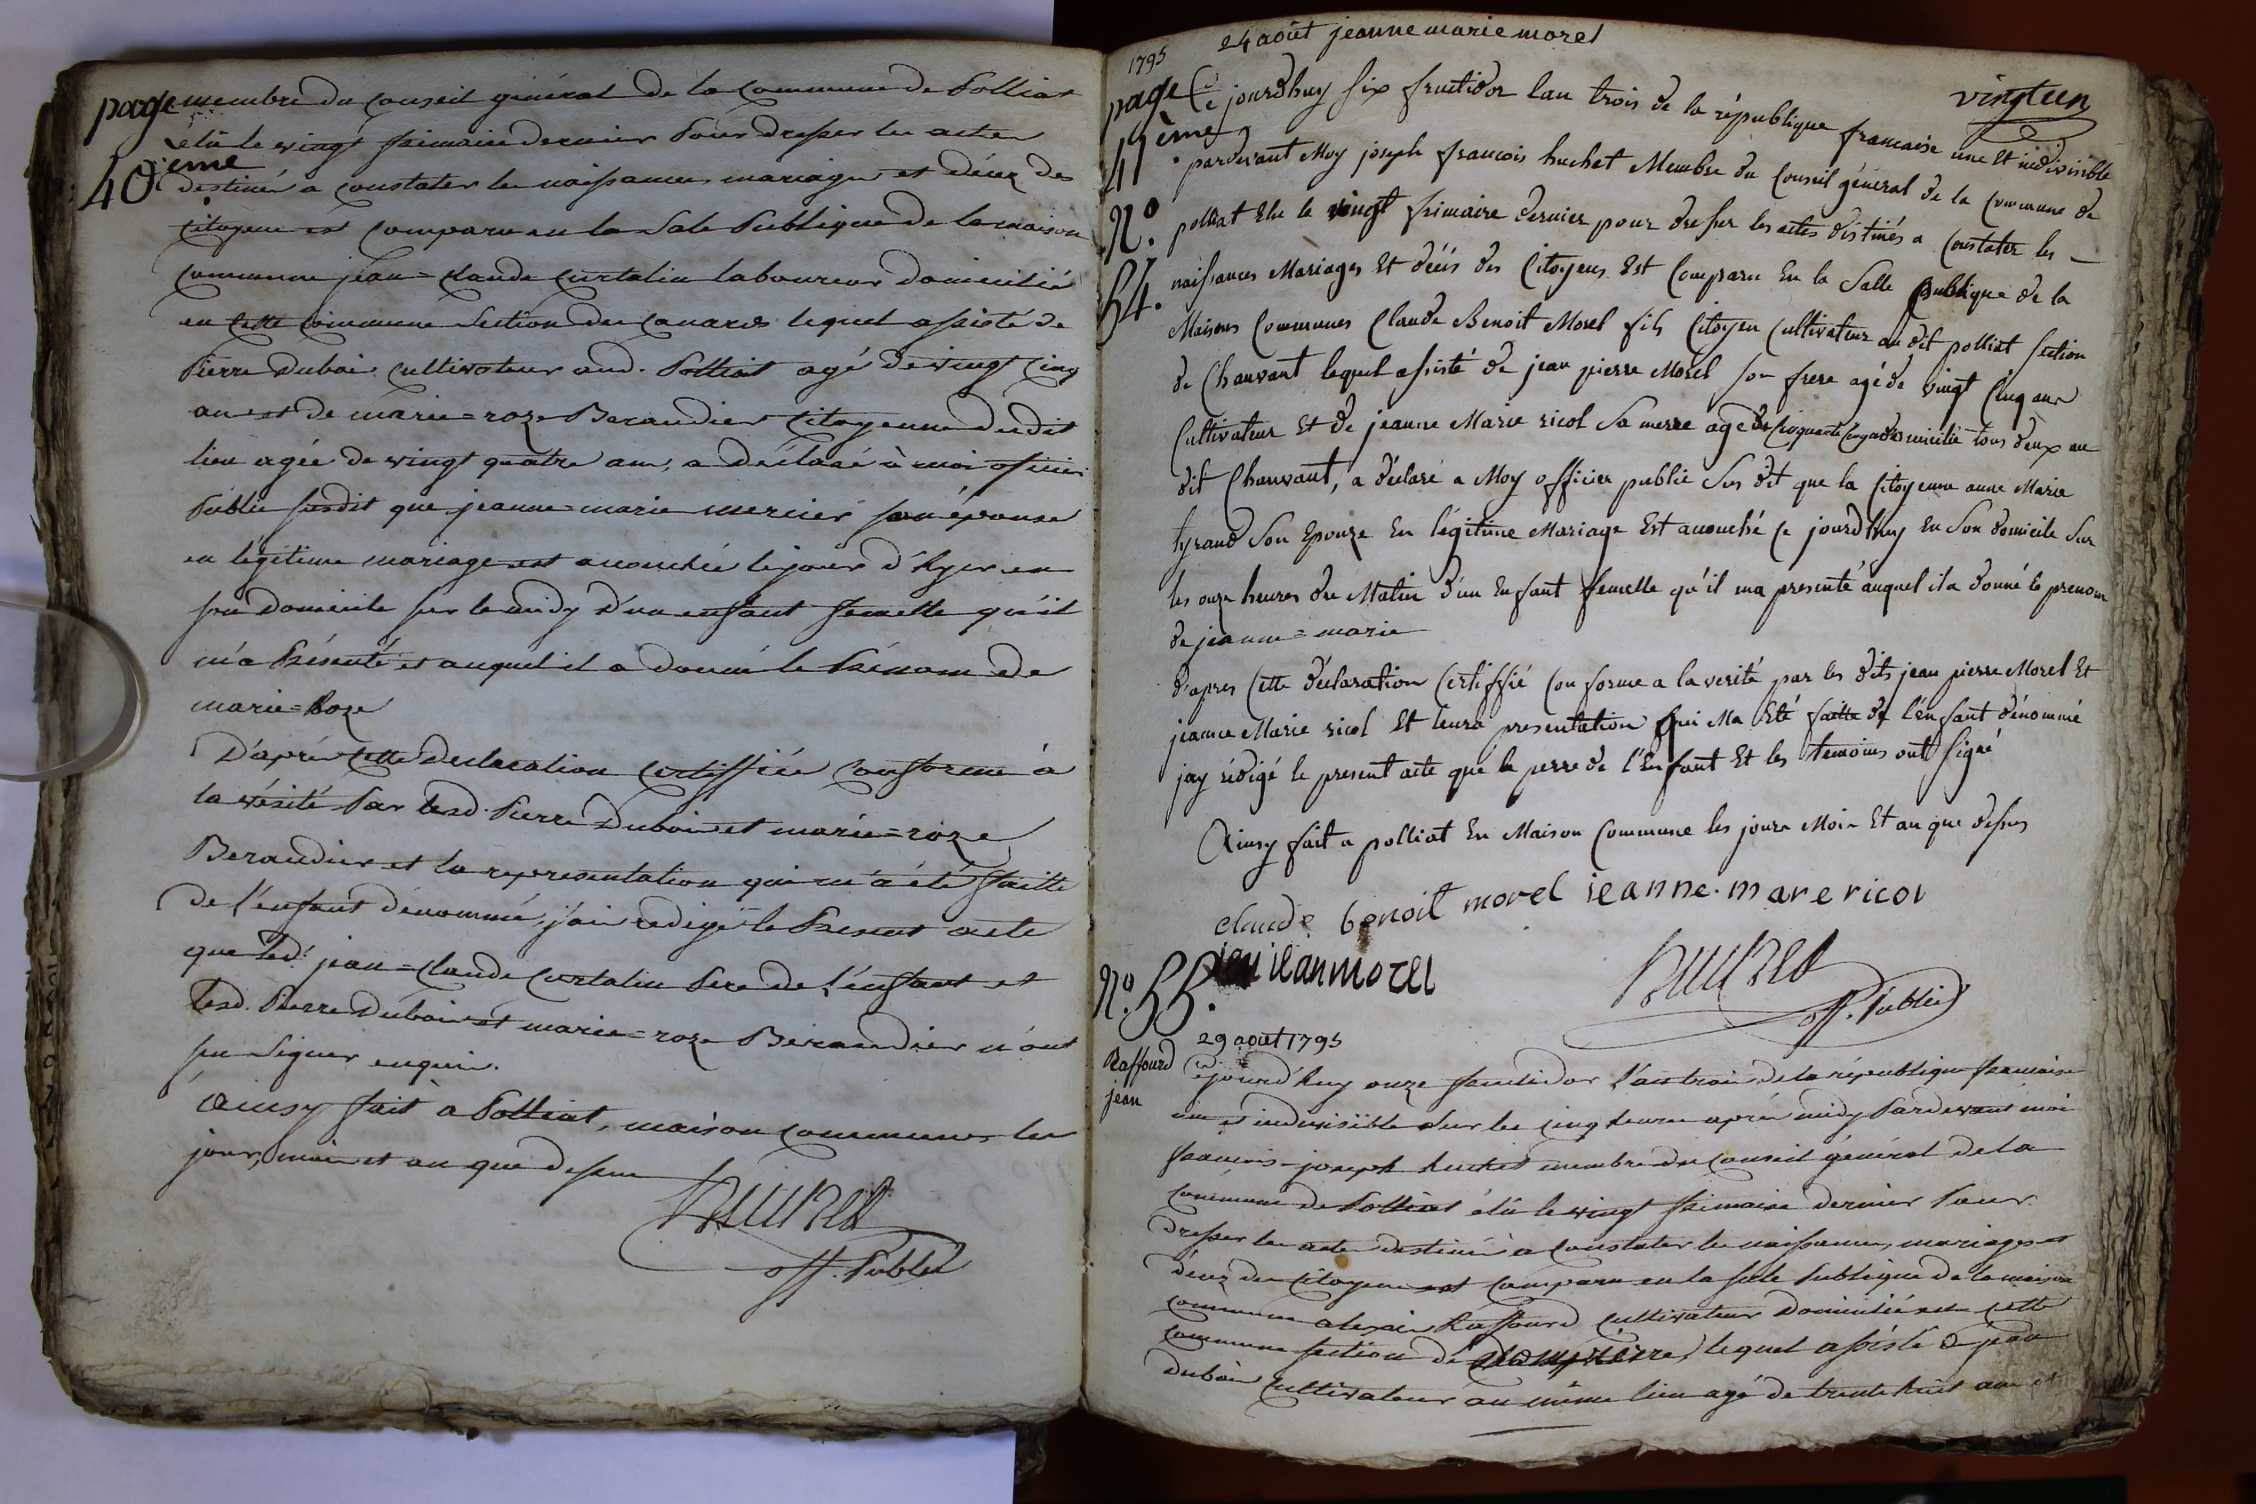 page
40ème
membre du conseil général de la commune de Polliat
élû le vingt frimaire dernier Pour dresser les actes
destinés a constater les naissances mariages et décez des
citoyens est comparu en la sale Publique de la maison
commune jean=claude curtalin laboureur domicilié
en cette commune section des canards lequel assisté de
Pierre Dubois cultivateur aud. Polliat agé de vingt cinq
ans et de marie=roze Beraudier citoyenne dudit
lieu agée de vingt quatre ans, a déclaré à moi officier
Public susdit que jeanne=marie mercier son épouse
en légitime mariage est accouchée le jour d'hyer en
son domicile sur le midy d'un enfant femelle qu'il
m'a Présenté et auquel il a donné le Prénom de
marie=Roze
D'après cette declaration certiffiée conforme à
la vérité Par lesd. Pierre Dubois et marie=roze
Beraudier et la representation qui m'a été faitte
de l'enfant dénommé, j'ai redigé le Present acte
que led. jean=claude curtalin Pere de l'enfant et
lesd. Pierre Dubois et marie=roze Beraudier n'ont
su signer enquis.
Ainsy fait à Polliat, maison commune les
jour, mois et an que dessus
huchet
off. Public
1795 24 août jeanne marie morel
page
41ème
vingteun
N.o
54.
Ce jourdhuy six fructidor lan trois de la république francaise une Et indivisible
pardevant Moy joseph francois huchet Membre du Conseil géneral de la Commune de
polliat Elu le vingt frimaire dernier pour dresser les actes distinés a Constater les
naissances Mariages Et décés des Citoyens Est Comparu En la Salle publique de la
Maisons Communes Claude Benoit Morel fils Citoyen Cultivateur au dit polliat section
de Chanvant lequel assisté de jean pierre Morel son frere agé de vingt Cinq ans
Cultivateur Et de jeanne Marie ricol Sa merre agé de cinquante cinq ans domicilié tous deux au
dit Chanvant, a déclaré a Moy officier public Sus dit que la Citoyenne anne Marie
tyrand Son Epouze En légitime Mariage Est acouché Ce jourdhuy En Son domicile Sur
les onze heures du Matin d'un Enfant femelle qu'il ma presenté auquel il a donné le prenom
de jeanne=marie
d'apres Cette déclaration Certiffié Conforme a la verité par les dits jean pierre Morel Et
jeanne Marie ricol Et leura presentation qui Ma Eté faitte de l'enfant dénommé
jay rédigé le present acte que le perre de l'Enfant Et les temoins ont signé
Ainsy fait a polliat En Maison Commune les jours Mois Et an que dessus
claude benoit morel jeanne.mare ricol
jean morel
huchet
off. Public
N.o 55.
29 août 1795
Raffourd
jean
Cejourd'huy onze fructidor l'an trois de la république francaise
une et indivisible sur les cinq heures après midy Pardevant moi
francois-joseph huchet membre du conseil général de la
commune de Polliat élû le vingt frimaire dernier Pour
dresser les actes destinés à constater les naissances, mariages et
décez des citoyens est comparu en la sale Publique de la maison
commune alexis Raffourd cultivateur domicilié en cette
commune section de lequel assisté de jean
dubois cultivateur au même lieu agé de trente huit ans et